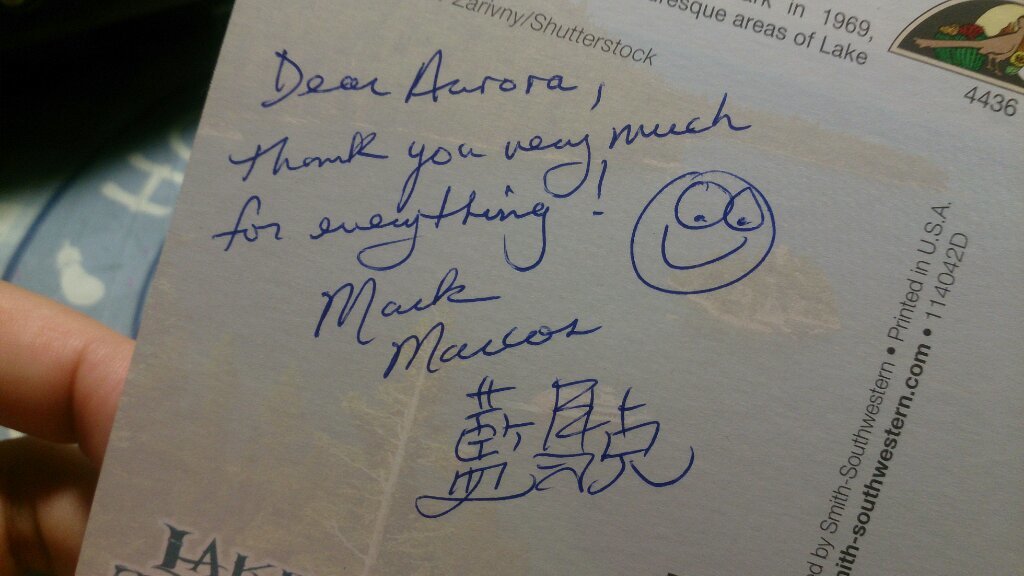 in 1969,
areas of Lake
Zarivny/Shutterstock
4436
Dear Aurora,
thank you very much
for everything!
Mark
Marcos
藍
by Smith-Southwestern • Printed in U.S.A.
ith-southwestern.com • 114042D
LAKE